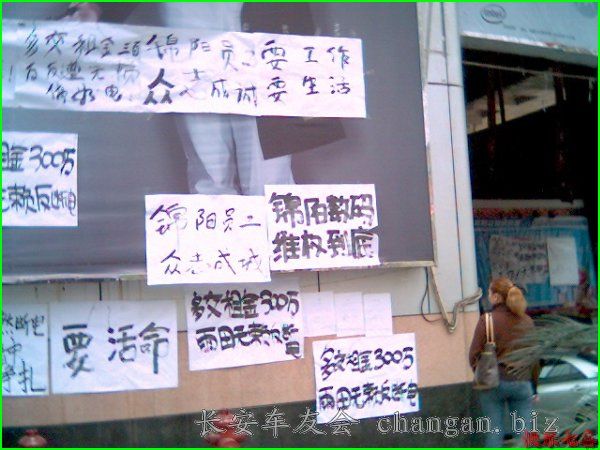 多交租金三百 锦阳员工要工作
万反遭无
停水电 众志成诚要生活
intel
租金300万
无赖反断电
锦阳员工
众志成城
锦阳数码
维权到底
断电
扎
要活命
多交租金300万
雨田无赖反断电
多交租金300万
雨田无赖反断电
长安车友会 changan.biz